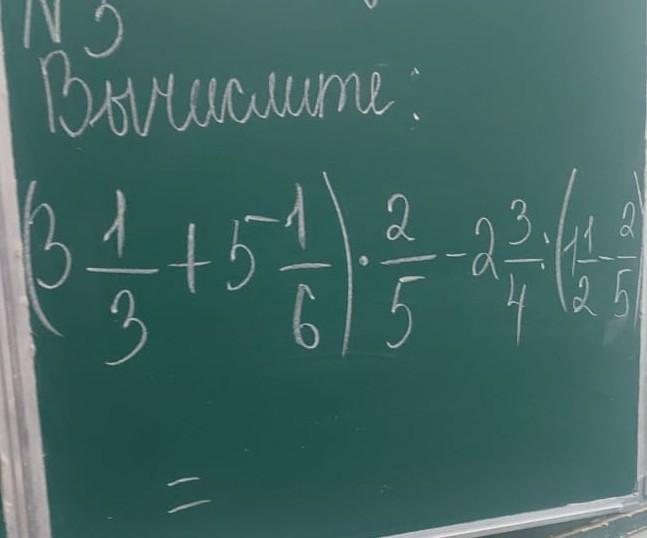 №3
Вычислите:
(3 1/3 + 5 1/6) · 2/5 - 2 3/4 : (1 1/2 - 2/5)
=